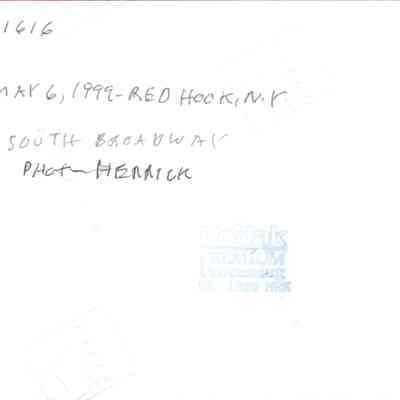 1616
MAY 6, 1999-RED HOOK, N.Y.
SOUTH BROADWAY
PHOTO-HERRICK
Kodak
PREMIUM
Processing